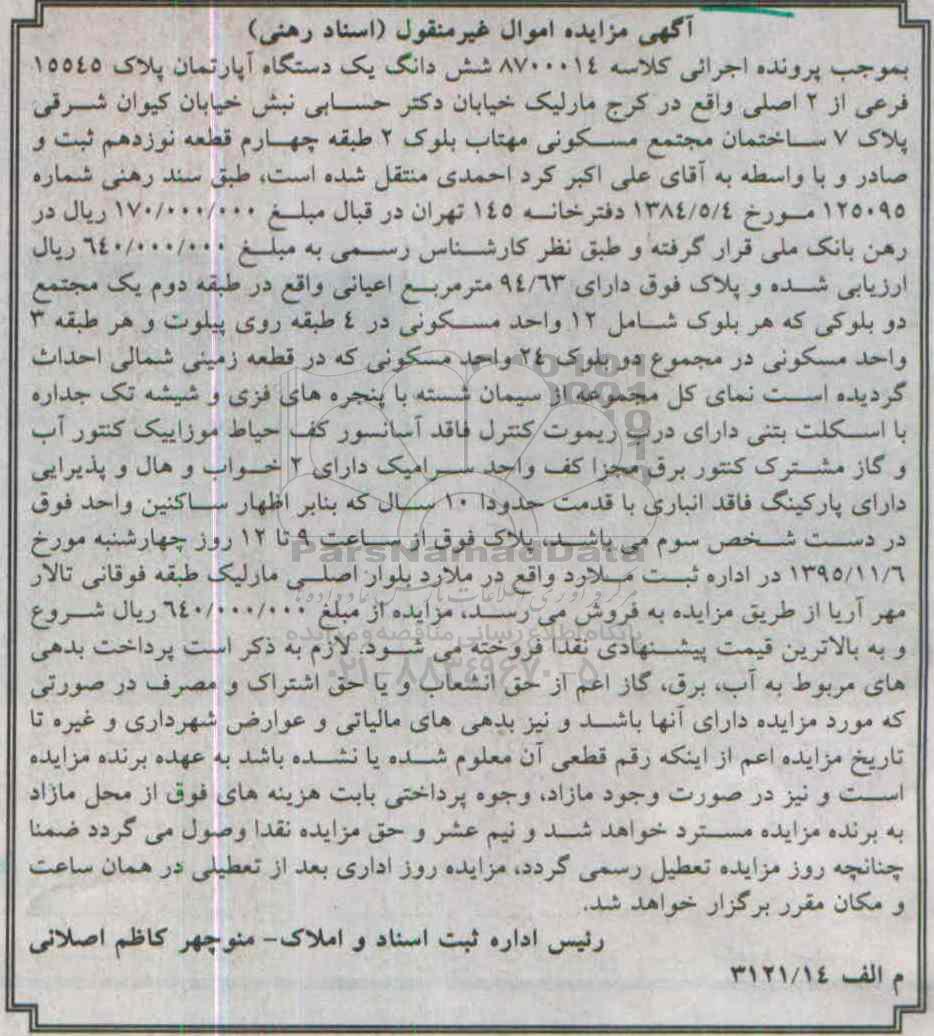 آگهی مزایده اموال غیرمنقول (اسناد رهنی)
بموجب پرونده اجرائی کلاسه ۸۷۰۰۰۱٤ شش دانگ یک دستگاه آپارتمان پلاک ۱٥٥٤٥
فرعی از ۲ اصلی واقع در کرج مارلیک خیابان دکتر حسابی نبش خیابان کیوان شرقی
پلاک ۷ ساختمان مجتمع مسکونی مهتاب بلوک ۲ طبقه چهارم قطعه نوزدهم ثبت و
صادر و با واسطه به آقای علی اکبر کرد احمدی منتقل شده است، طبق سند رهنی شماره
۱۲٥۰۹٥ مورخ ۱۳۸٤/٥/٤ دفترخانه ۱٤٥ تهران در قبال مبلغ ۱۷۰/۰۰۰/۰۰۰ ریال در
رهن بانک ملی قرار گرفته و طبق نظر کارشناس رسمی به مبلغ ٦٤۰/۰۰۰/۰۰۰ ریال
ارزیابی شده و پلاک فوق دارای ۹٤/٦۳ مترمربع اعیانی واقع در طبقه دوم یک مجتمع
دو بلوکی که هر بلوک شامل ۱۲ واحد مسکونی در ٤ طبقه روی پیلوت و هر طبقه ۳
واحد مسکونی در مجموع دو بلوک ۲٤ واحد مسکونی که در قطعه زمینی شمالی احداث
گردیده است نمای کل مجموعه از سیمان شسته با پنجره های فزی و شیشه تک جداره
با اسکلت بتنی دارای درب ریموت کنترل فاقد آسانسور کف حیاط موزاییک کنتور آب
و گاز مشترک کنتور برق مجزا کف واحد سرامیک دارای ۲ خواب و هال و پذیرایی
دارای پارکینگ فاقد انباری با قدمت حدودا ۱۰ سال که بنابر اظهار ساکنین واحد فوق
در دست شخص سوم می باشد، پلاک فوق از ساعت ۹ تا ۱۲ روز چهارشنبه مورخ
ParsNamadData
۱۳۹٥/۱۱/٦ در اداره ثبت ملارد واقع در ملارد بلوار اصلی مارلیک طبقه فوقانی تالار
مهر آریا از طریق مزایده به فروش می رسد، مزایده از مبلغ ٦٤۰/۰۰۰/۰۰۰ ریال شروع
پایگاه اطلاع رسانی مناقصه و مزایده
و به بالاترین قیمت پیشنهادی نقدا فروخته می شود. لازم به ذکر است پرداخت بدهی
۰۲۱-۸۸۳٤۹٦۷۰-٥
های مربوط به آب، برق، گاز اعم از حق انشعاب و یا حق اشتراک و مصرف در صورتی
که مورد مزایده دارای آنها باشد و نیز بدهی های مالیاتی و عوارض شهرداری و غیره تا
تاریخ مزایده اعم از اینکه رقم قطعی آن معلوم شده یا نشده باشد به عهده برنده مزایده
است و نیز در صورت وجود مازاد، وجوه پرداختی بابت هزینه های فوق از محل مازاد
به برنده مزایده مسترد خواهد شد و نیم عشر و حق مزایده نقدا وصول می گردد ضمنا
چنانچه روز مزایده تعطیل رسمی گردد، مزایده روز اداری بعد از تعطیلی در همان ساعت
و مکان مقرر برگزار خواهد شد.
رئیس اداره ثبت اسناد و املاک- منوچهر کاظم اصلانی
م الف ۳۱۲۱/۱٤